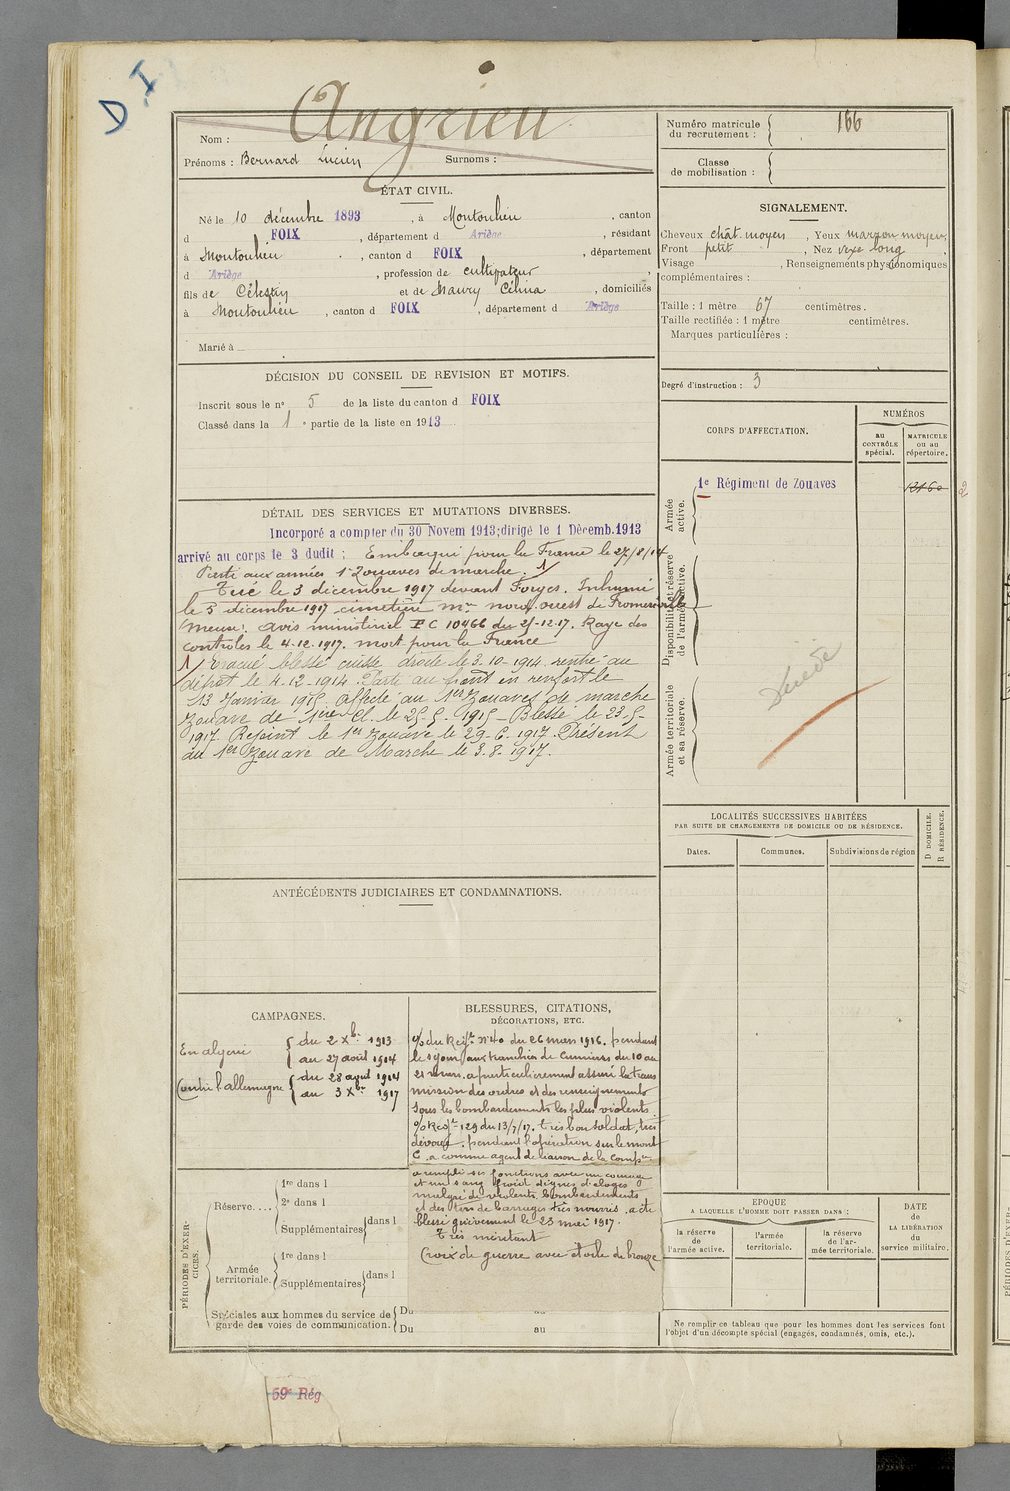 D I
Nom : Angrieu
Prénoms : Bernard Lucien Surnoms :
ÉTAT CIVIL.
Né le 10 décembre 1893, à Montoulieu, canton
d FOIX, département d Ariège, résidant
à Montoulieu, canton d FOIX, département
d Ariège, profession de cultivateur,
fils de Célestin et de Maury Célina, domiciliés
à Montoulieu, canton d FOIX, département d Ariège
Marié à
DÉCISION DU CONSEIL DE REVISION ET MOTIFS.
Inscrit sous le no 5 de la liste du canton d FOIX
Classé dans la 1e partie de la liste en 1913
DÉTAIL DES SERVICES ET MUTATIONS DIVERSES.
Incorporé a compter du 30 Novem 1913; dirigé le 1 Décemb. 1913
arrivé au corps le 3 dudit ; Embarqué pour la France le 27/8/14
Parti aux armées 1er Zouaves de marche. 1/
Tué le 3 décembre 1917 devant Forges. Inhumé
le 5 décembre 1917 cimetière nord ouest de Fromeréville
(Meuse). avis ministériel PC 10466 du 25-12-17. Rayé des
contrôles le 4.12.1917. mort pour la France
1/ Evacué blessé cuisse droite le 3.10.1914. rentré au
dépôt le 4.12.1914. Parti au front en renfort le
13 Janvier 1915. Affecté au 1er Zouaves de marche
Zouave de 1ère Cl. le 25.5.1915 – Blessé le 23-5-
1917. Rejoint le 1er Zouave le 29.6.1917. Présent
au 1er Zouave de Marche le 3.8.1917.
ANTÉCÉDENTS JUDICIAIRES ET CONDAMNATIONS.
CAMPAGNES.
En algérie { du 2 Xbre 1913
au 27 août 1914
Contre l'allemagne { du 28 août 1914
au 3 Xbre 1917
BLESSURES, CITATIONS,
DÉCORATIONS, ETC.
% du Regt n° 40 du 26 mars 1916. pendant
le séjour aux tranchées de Cumières du 10 au
21 mars. a particulièrement assuré la trans
mission des ordres et des renseignements
sous les bombardements les plus violents.
% Regt 129 du 13/7/17. très bon soldat, très
dévoué. pendant l'opération sur le mont
C. a comme agent de liaison de la Compie
a rempli ses fonctions avec un courage
et un sang froid dignes d'éloges
malgré de violents bombardements
et des tirs de barrages très nourris. a été
blessé grièvement le 23 mai 1917.
Très méritant
Croix de guerre avec étoile de bronze
PÉRIODES D'EXERCICES.
Réserve.... { 1re dans l
2e dans l
Supplémentaires } dans l
Armée territoriale. { 1re dans l
Supplémentaires } dans l
Spéciales aux hommes du service de { Du au
garde des voies de communication. { Du au
59e Rég
Numéro matricule du recrutement : } 166
Classe de mobilisation :
SIGNALEMENT.
Cheveux chât. moyen, Yeux marron moyen,
Front petit, Nez vexe long,
Visage , Renseignements physionomiques
complémentaires :
Taille : 1 mètre 67 centimètres.
Taille rectifiée : 1 mètre centimètres.
Marques particulières :
Degré d'instruction : 3
CORPS D'AFFECTATION.
NUMÉROS
au CONTRÔLE spécial.
MATRICULE ou au répertoire.
Armée active.
1e Régiment de Zouaves
2160
2
Disponibilité et réserve de l'armée active.
Armée territoriale et sa réserve.
LOCALITÉS SUCCESSIVES HABITÉES
PAR SUITE DE CHANGEMENTS DE DOMICILE OU DE RÉSIDENCE.
D DOMICILE.
R RÉSIDENCE.
Dates. Communes. Subdivisions de région
EPOQUE
A LAQUELLE L'HOMME DOIT PASSER DANS :
la réserve de l'armée active.
l'armée territoriale.
la réserve de l'armée territoriale.
DATE de LA LIBÉRATION du service militaire.
Ne remplir ce tableau que pour les hommes dont les services font
l'objet d'un décompte spécial (engagés, condamnés, omis, etc.).